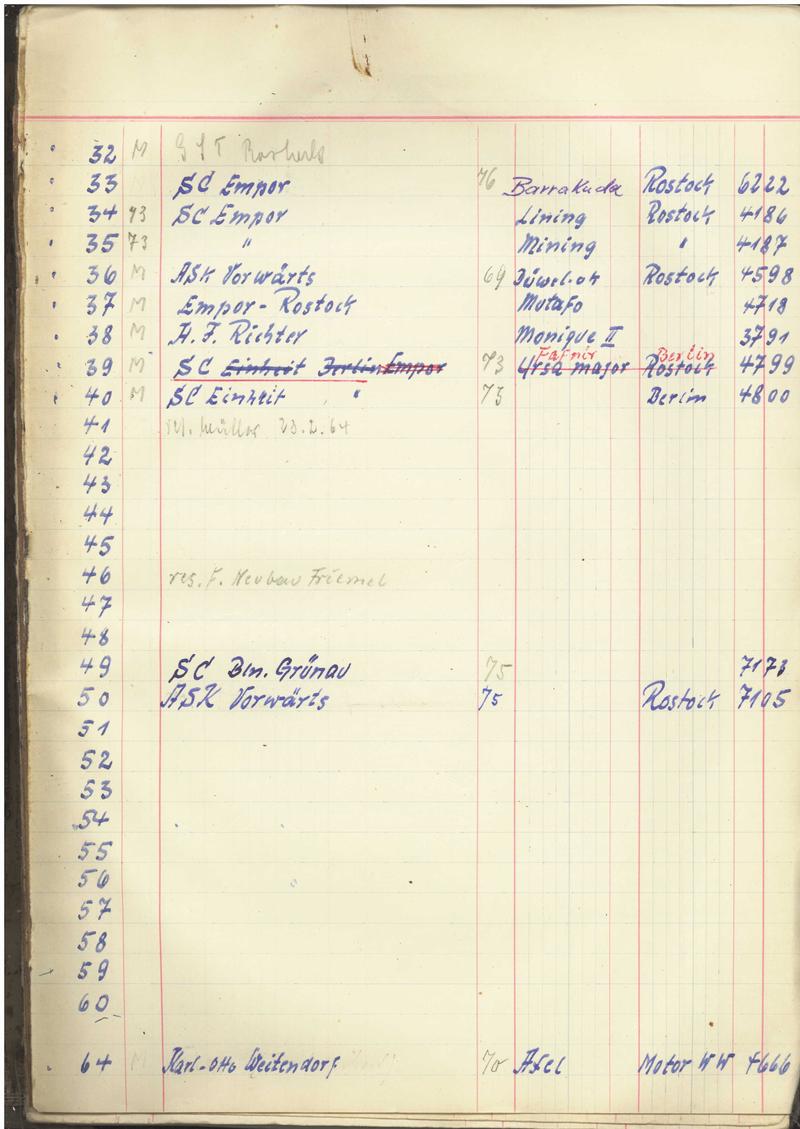 32 M GST
33 SC Empor 76 Barrakuda Rostock 6222
34 73 SC Empor Lining Rostock 4186
35 73 " Mining " 4187
36 M ASK Vorwärts 69 Düwel-ok Rostock 4598
37 M Empor-Rostock Mutafo 4718
38 M H. F. Richter Monique II 3791
Fafnir Berlin
39 M SC Einheit Berlin Empor 73 Ursa major Rostock 4799
40 M SC Einheit " 73 Berlin 4800
41 res. Müller 23.2.64
42
43
44
45
46 res. F. Neubau Friemel
47
48
49 SC Bln. Grünau 75 7173
50 ASK Vorwärts 75 Rostock 7105
51
52
53
54
55
56
57
58
59
60
64 M Karl-Otto Weitendorf 70 Motor WW 4666